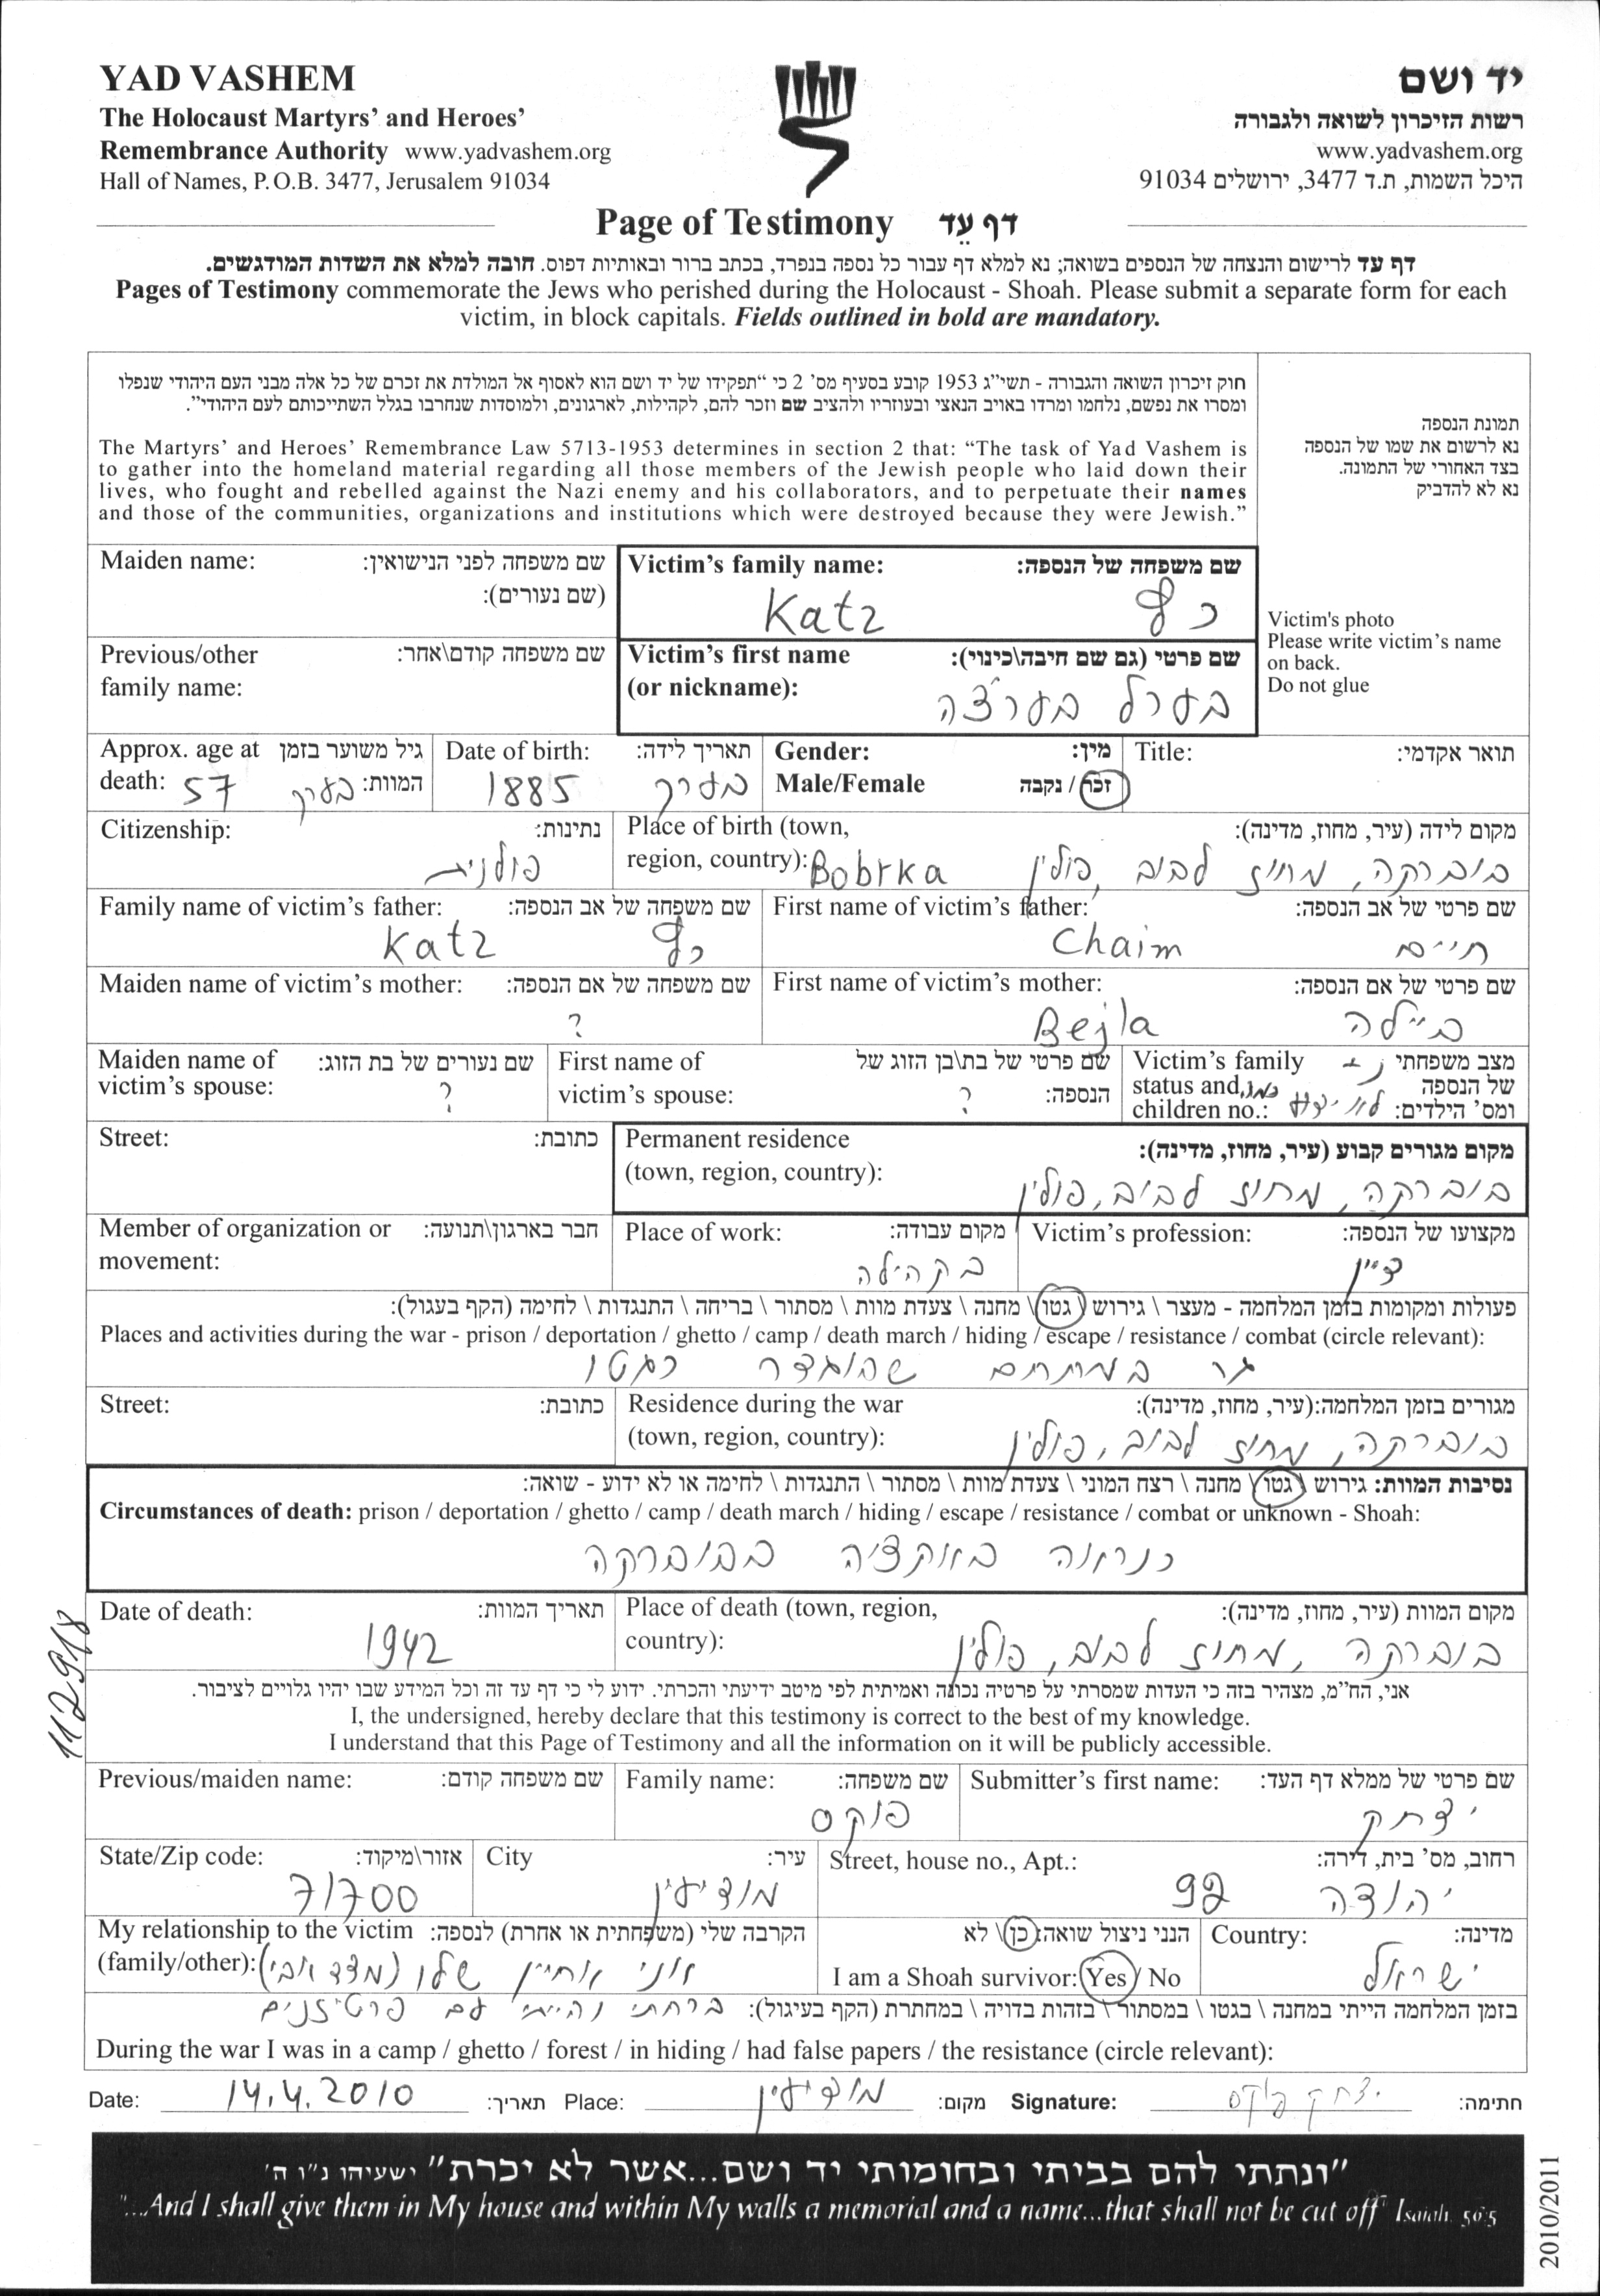 YAD VASHEM
The Holocaust Martyrs' and Heroes'
Remembrance Authority www.yadvashem.org
Hall of Names, P.O.B. 3477, Jerusalem 91034
יד ושם
רשות הזיכרון לשואה ולגבורה
www.yadvashem.org
היכל השמות, ת.ד 3477, ירושלים 91034
Page of Testimony דף עֵד
דף עד לרישום והנצחה של הנספים בשואה; נא למלא דף עבור כל נספה בנפרד, בכתב ברור ובאותיות דפוס. חובה למלא את השדות המודגשים.
Pages of Testimony commemorate the Jews who perished during the Holocaust - Shoah. Please submit a separate form for each
victim, in block capitals. Fields outlined in bold are mandatory.
חוק זיכרון השואה והגבורה - תשי"ג 1953 קובע בסעיף מס' 2 כי "תפקידו של יד ושם הוא לאסוף אל המולדת את זכרם של כל אלה מבני העם היהודי שנפלו
ומסרו את נפשם, נלחמו ומרדו באויב הנאצי ובעוזריו ולהציב שם וזכר להם, לקהילות, לארגונים, ולמוסדות שנחרבו בגלל השתייכותם לעם היהודי".
The Martyrs' and Heroes' Remembrance Law 5713-1953 determines in section 2 that: "The task of Yad Vashem is
to gather into the homeland material regarding all those members of the Jewish people who laid down their
lives, who fought and rebelled against the Nazi enemy and his collaborators, and to perpetuate their names
and those of the communities, organizations and institutions which were destroyed because they were Jewish."
תמונת הנספה
נא לרשום את שמו של הנספה
בצד האחורי של התמונה.
נא לא להדביק
Victim's photo
Please write victim's name
on back.
Do not glue
Maiden name: שם משפחה לפני הנישואין:
(שם נעורים):
Victim's family name: שם משפחה של הנספה:
Katz כץ
Previous/other שם משפחה קודם\אחר:
family name:
Victim's first name שם פרטי (גם שם חיבה\כינוי):
(or nickname):
בערל בערצ'ה
Approx. age at גיל משוער בזמן
death: 57 בערך המוות:
Date of birth: תאריך לידה:
1885 בערך
Gender: מין:
Male/Female זכר / נקבה
Title: תואר אקדמי:
Citizenship: נתינות:
פולנית
Place of birth (town, מקום לידה (עיר, מחוז, מדינה):
region, country): Bobrka בוברקה, מחוז לבוב, פולין
Family name of victim's father: שם משפחה של אב הנספה:
Katz כץ
First name of victim's father: שם פרטי של אב הנספה:
Chaim חיים
Maiden name of victim's mother: שם משפחה של אם הנספה:
?
First name of victim's mother: שם פרטי של אם הנספה:
Bejla ביילה
Maiden name of שם נעורים של בת הזוג:
victim's spouse: ?
First name of שם פרטי של בת\בן הזוג של
victim's spouse: ? הנספה:
Victim's family מצב משפחתי
status and של הנספה
children no.: ומס' הילדים: לא ידוע כמה
Street: כתובת:
Permanent residence מקום מגורים קבוע (עיר, מחוז, מדינה):
(town, region, country):
בוברקה, מחוז לבוב, פולין
Member of organization or חבר בארגון\תנועה:
movement:
Place of work: מקום עבודה:
בקהילה
Victim's profession: מקצועו של הנספה:
דיין
פעולות ומקומות בזמן המלחמה - מעצר \ גירוש \ גטו \ מחנה \ צעדת מוות \ מסתור \ בריחה \ התנגדות \ לחימה (הקף בעגול):
Places and activities during the war - prison / deportation / ghetto / camp / death march / hiding / escape / resistance / combat (circle relevant):
גר במתחם שהוגדר כגטו
Street: כתובת:
Residence during the war מגורים בזמן המלחמה:(עיר, מחוז, מדינה):
(town, region, country):
בוברקה, מחוז לבוב, פולין
נסיבות המוות: גירוש \ גטו \ מחנה \ רצח המוני \ צעדת מוות \ מסתור \ התנגדות \ לחימה או לא ידוע - שואה:
Circumstances of death: prison / deportation / ghetto / camp / death march / hiding / escape / resistance / combat or unknown - Shoah:
כנראה באקציה בבוברקה
Date of death: תאריך המוות:
1942
Place of death (town, region, מקום המוות (עיר, מחוז, מדינה):
country):
בוברקה, מחוז לבוב, פולין
112918
אני, הח"מ, מצהיר בזה כי העדות שמסרתי על פרטיה נכונה ואמיתית לפי מיטב ידיעתי והכרתי. ידוע לי כי דף עד זה וכל המידע שבו יהיו גלויים לציבור.
I, the undersigned, hereby declare that this testimony is correct to the best of my knowledge.
I understand that this Page of Testimony and all the information on it will be publicly accessible.
Previous/maiden name: שם משפחה קודם:
Family name: שם משפחה:
פוקס
Submitter's first name: שם פרטי של ממלא דף העד:
יצחק
State/Zip code: אזור\מיקוד:
71700
City עיר:
מודיעין
Street, house no., Apt.: רחוב, מס' בית, דירה:
יהודה 92
My relationship to the victim הקרבה שלי (משפחתית או אחרת) לנספה:
(family/other): אני אחיין שלו (מצד אבי)
הנני ניצול שואה: כן \ לא
I am a Shoah survivor: Yes / No
Country: מדינה:
ישראל
בזמן המלחמה הייתי במחנה \ בגטו \ במסתור \ בזהות בדויה \ במחתרת (הקף בעיגול): ברחתי והייתי עם פרטיזנים
During the war I was in a camp / ghetto / forest / in hiding / had false papers / the resistance (circle relevant):
Date: 14.4.2010 תאריך: Place: מודיעין מקום: Signature: יצחק פוקס חתימה:
"ונתתי להם בביתי ובחומותי יד ושם...אשר לא יכרת" ישעיהו נ"ו ה'
"...And I shall give them in My house and within My walls a memorial and a name...that shall not be cut off" Isaiah 56:5
2010/2011